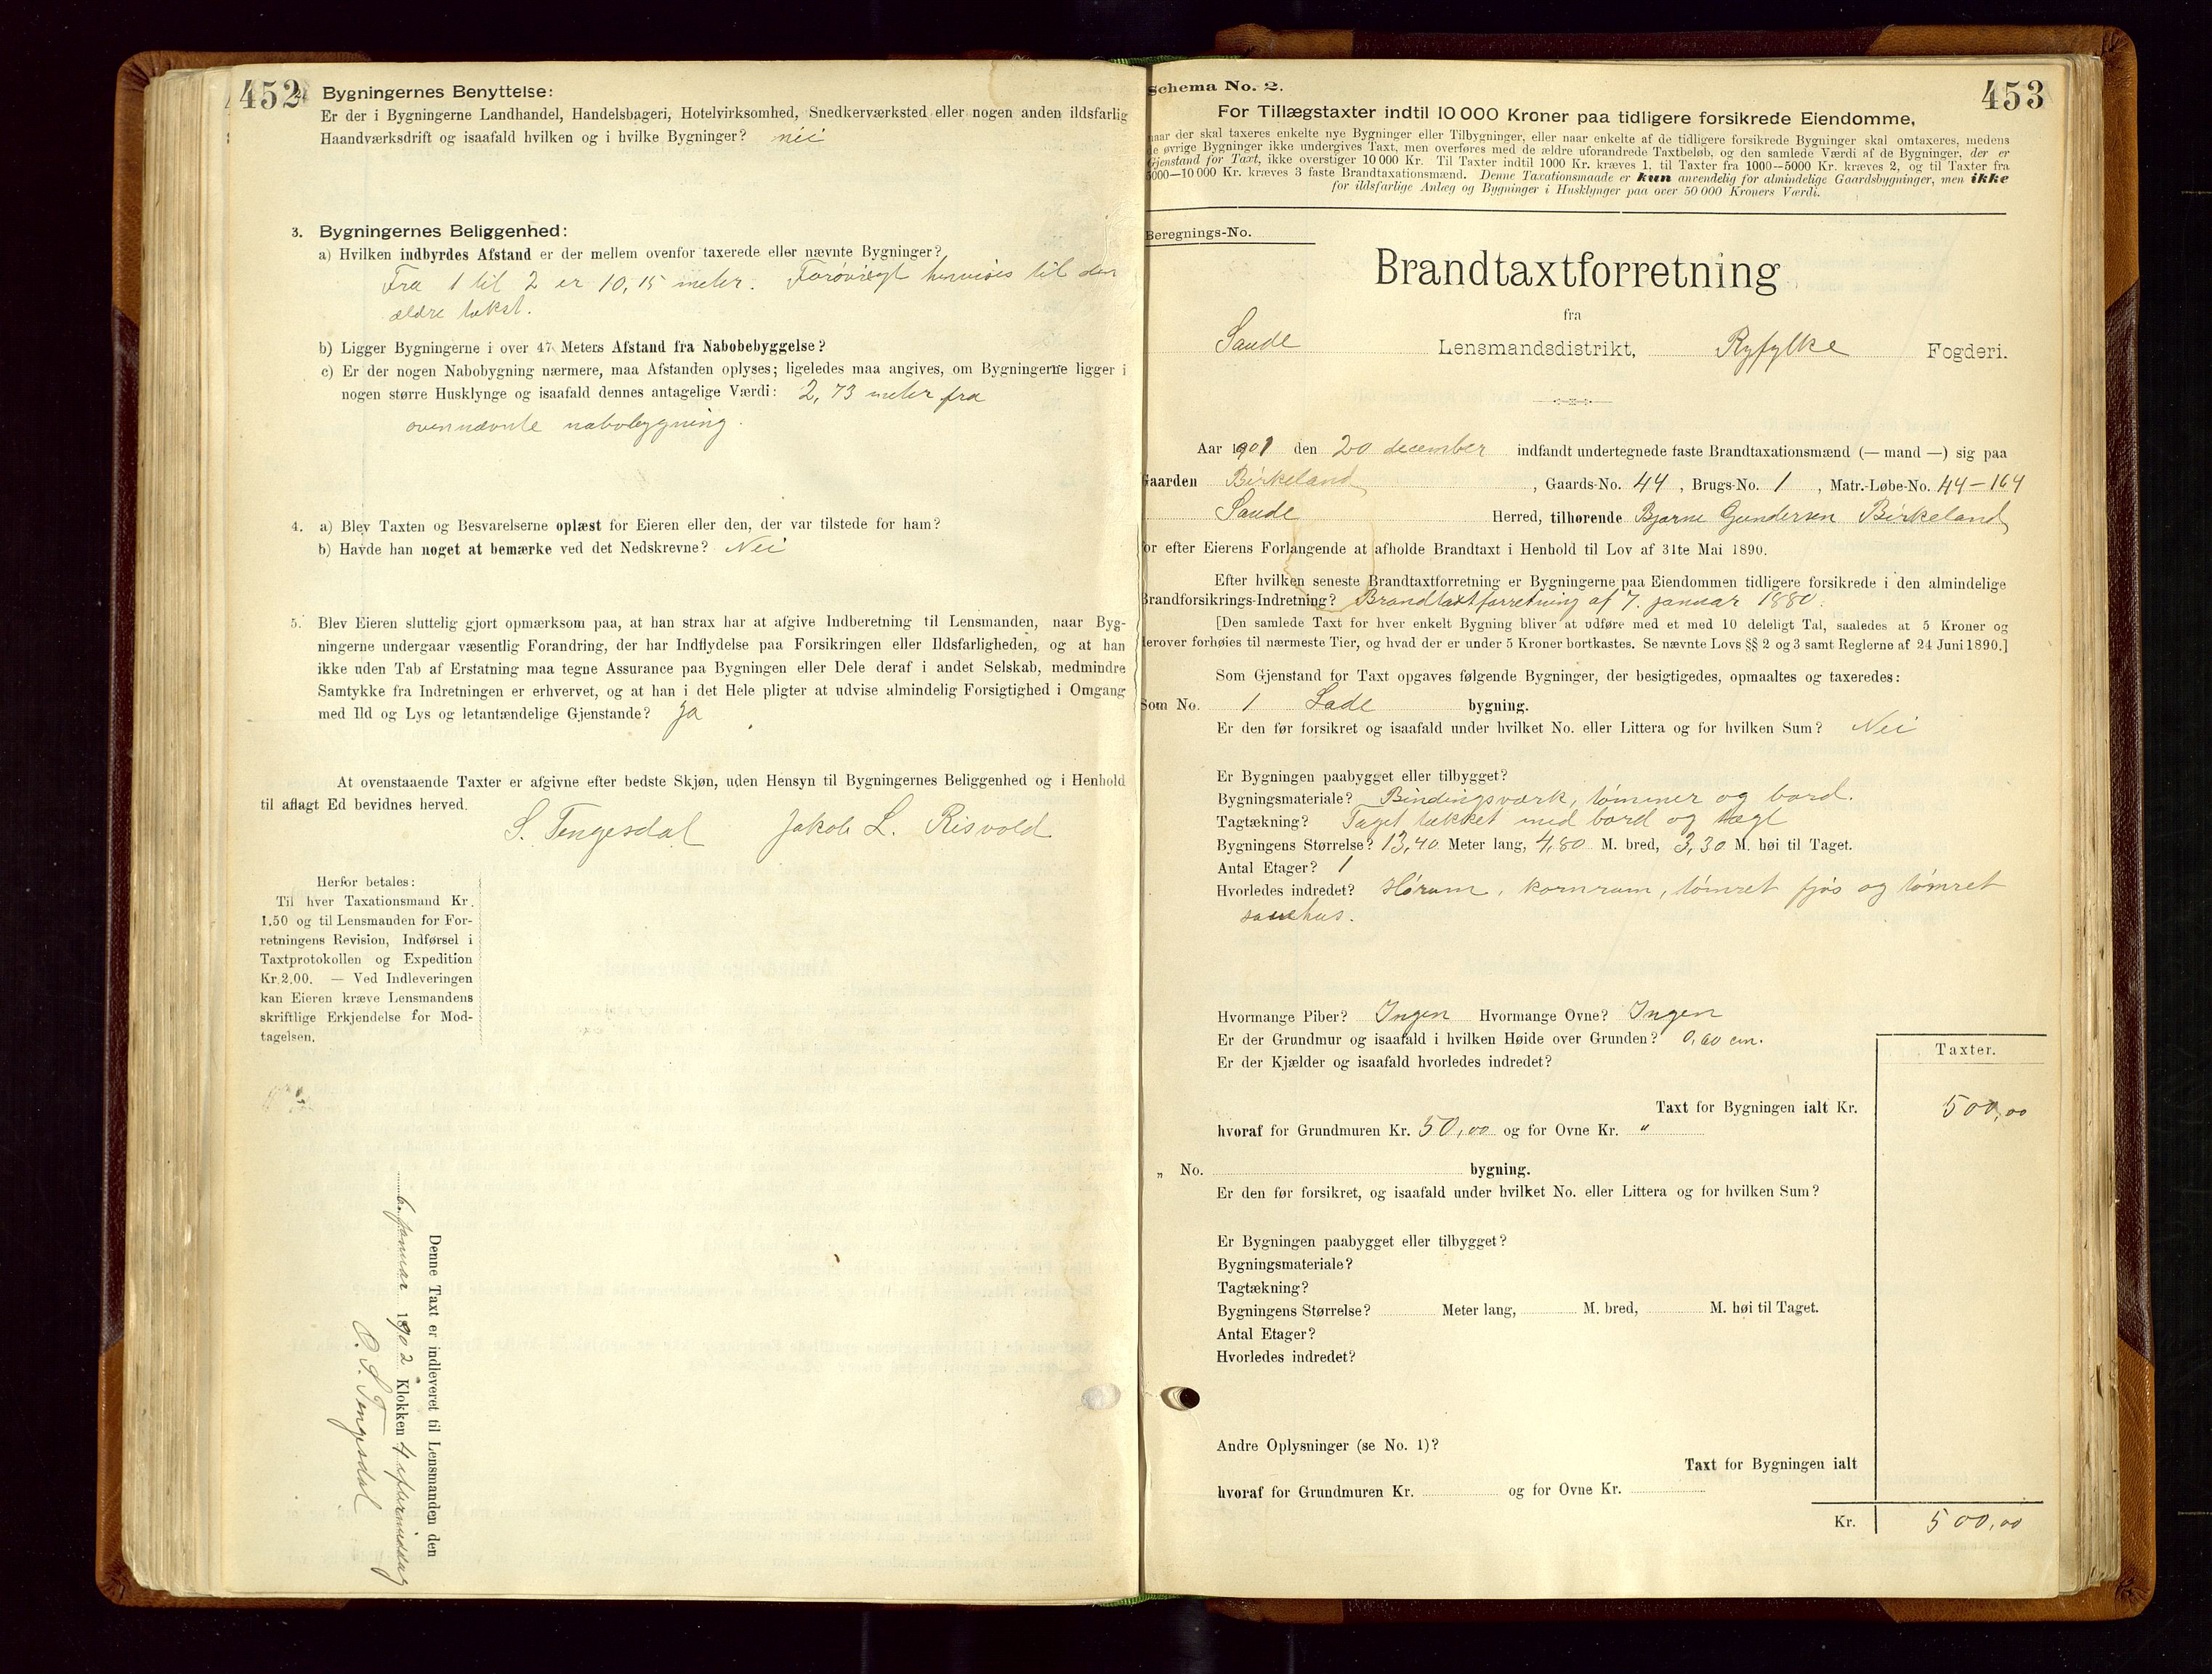 452
Bygningernes Benyttelse:
Er der i Bygningerne Landhandel, Handelsbageri, Hotelvirksomhed, Snedkerværksted eller nogen anden ildsfarlig
Haandværksdrift og isaafald hvilken og i hvilke Bygninger? nei
3. Bygningernes Beliggenhed:
a) Hvilken indbyrdes Afstand er der mellem ovenfor taxerede eller nævnte Bygninger?
Fra 1 til 2 er 10,15 meter. Forøvrigt henvises til den
ældre takst.
b) Ligger Bygningerne i over 47 Meters Afstand fra Nabobebyggelse?
c) Er der nogen Nabobygning nærmere, maa Afstanden oplyses; ligeledes maa angives, om Bygningerne ligger i
nogen større Husklynge og isaafald dennes antagelige Værdi: 2,73 meter fra
ovennævnte nabobygning.
4. a) Blev Taxten og Besvarelserne oplæst for Eieren eller den, der var tilstede for ham?
b) Havde han noget at bemærke ved det Nedskrevne? Nei
5. Blev Eieren sluttelig gjort opmærksom paa, at han strax har at afgive Indberetning til Lensmanden, naar Byg-
ningerne undergaar væsentlig Forandring, der har Indflydelse paa Forsikringen eller Ildsfarligheden, og at han
ikke uden Tab af Erstatning maa tegne Assurance paa Bygningen eller Dele deraf i andet Selskab, medmindre
Samtykke fra Indretningen er erhvervet, og at han i det Hele pligter at udvise almindelig Forsigtighed i Omgang
med Ild og Lys og letantændelige Gjenstande? Ja
At ovenstaaende Taxter er afgivne efter bedste Skjøn, uden Hensyn til Bygningernes Beliggenhed og i Henhold
til aflagt Ed bevidnes herved.
S. Tengesdal Jakob L. Risvold
Herfor betales:
Til hver Taxationsmand Kr.
1.50 og til Lensmanden for For-
retningens Revision, Indførsel i
Taxtprotokollen og Expedition
Kr. 2.00. — Ved Indleveringen
kan Eieren kræve Lensmandens
skriftlige Erkjendelse for Mod-
tagelsen.
Denne Taxt er indleveret til Lensmanden den
6. januar 1902 Klokken 4 eftermiddag
O. S. Tengesdal
453
Schema No. 2.
For Tillægstaxter indtil 10 000 Kroner paa tidligere forsikrede Eiendomme,
naar der skal taxeres enkelte nye Bygninger eller Tilbygninger, eller naar enkelte af de tidligere forsikrede Bygninger skal omtaxeres, medens
de øvrige Bygninger ikke undergives Taxt, men overføres med de ældre uforandrede Taxtbeløb, og den samlede Værdi af de Bygninger, der er
Gjenstand for Taxt, ikke overstiger 10 000 Kr. Til Taxter indtil 1000 Kr. kræves 1, til Taxter fra 1000—5000 Kr. kræves 2, og til Taxter fra
5000—10 000 Kr. kræves 3 faste Brandtaxationsmænd. Denne Taxationsmaade er kun anvendelig for almindelige Gaardsbygninger, men ikke
for ildsfarlige Anlæg og Bygninger i Husklynger paa over 50 000 Kroners Værdi.
Beregnings-No.
Brandtaxtforretning
fra
Saude Lensmandsdistrikt, Ryfylke Fogderi.
Aar 1901 den 20 december indfandt undertegnede faste Brandtaxationsmænd (— mand —) sig paa
Gaarden Birkeland, Gaards-No. 44, Brugs-No. 1, Matr.-Løbe-No. 44–164
Saude Herred, tilhørende Bjarne Gundersen Birkeland
for efter Eierens Forlangende at afholde Brandtaxt i Henhold til Lov af 31te Mai 1890.
Efter hvilken seneste Brandtaxtforretning er Bygningerne paa Eiendommen tidligere forsikrede i den almindelige
Brandforsikrings-Indretning? Brandtaxtforretning af 7. januar 1880.
[Den samlede Taxt for hver enkelt Bygning bliver at udføre med et med 10 deleligt Tal, saaledes at 5 Kroner og
derover forhøies til nærmeste Tier, og hvad der er under 5 Kroner bortkastes. Se nævnte Lovs §§ 2 og 3 samt Reglerne af 24 Juni 1890.]
Som Gjenstand for Taxt opgaves følgende Bygninger, der besigtigedes, opmaaltes og taxeredes:
Som No. 1 Lade bygning.
Er den før forsikret og isaafald under hvilket No. eller Littera og for hvilken Sum? Nei
Er Bygningen paabygget eller tilbygget?
Bygningsmateriale? Bindingsværk, tømmer og bord.
Tagtækning? Taget tækket med bord og tægl
Bygningens Størrelse? 13,40 Meter lang, 4,80 M. bred, 3,30 M. høi til Taget.
Antal Etager? 1
Hvorledes indredet? Hørum, kornrum, tømret fjøs og tømret
sauehus.
Hvormange Piber? Ingen Hvormange Ovne? Ingen
Er der Grundmur og isaafald i hvilken Høide over Grunden? 0,60 cm.
Er der Kjælder og isaafald hvorledes indredet?
Taxter.
Taxt for Bygningen ialt Kr. 500,00
hvoraf for Grundmuren Kr. 50,00 og for Ovne Kr. "
„ No. bygning.
Er den før forsikret, og isaafald under hvilket No. eller Littera og for hvilken Sum?
Er Bygningen paabygget eller tilbygget?
Bygningsmateriale?
Tagtækning?
Bygningens Størrelse? Meter lang, M. bred, M. høi til Taget.
Antal Etager?
Hvorledes indredet?
Andre Oplysninger (se No. 1)?
Taxt for Bygningen ialt
hvoraf for Grundmuren Kr. og for Ovne Kr.
Kr. 500,00